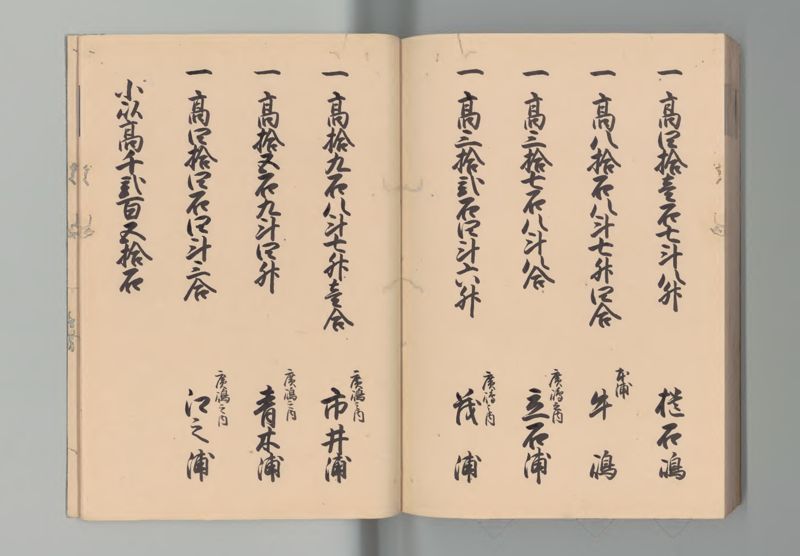 一 高四拾壱石七斗八升 櫃石嶋
一 高八拾石八斗七升四合 本浦 牛嶋
一 高三拾七石八斗八合 廣嶋之内 立石浦
一 高三拾弐石四斗六升 廣嶋之内 茂浦
一 高拾九石八斗七升壱合 廣嶋之内 市井浦
一 高拾五石九斗四升 廣嶋之内 青木浦
一 高四拾四石四斗三合 廣嶋之内 江之浦
小以高千弐百五拾石